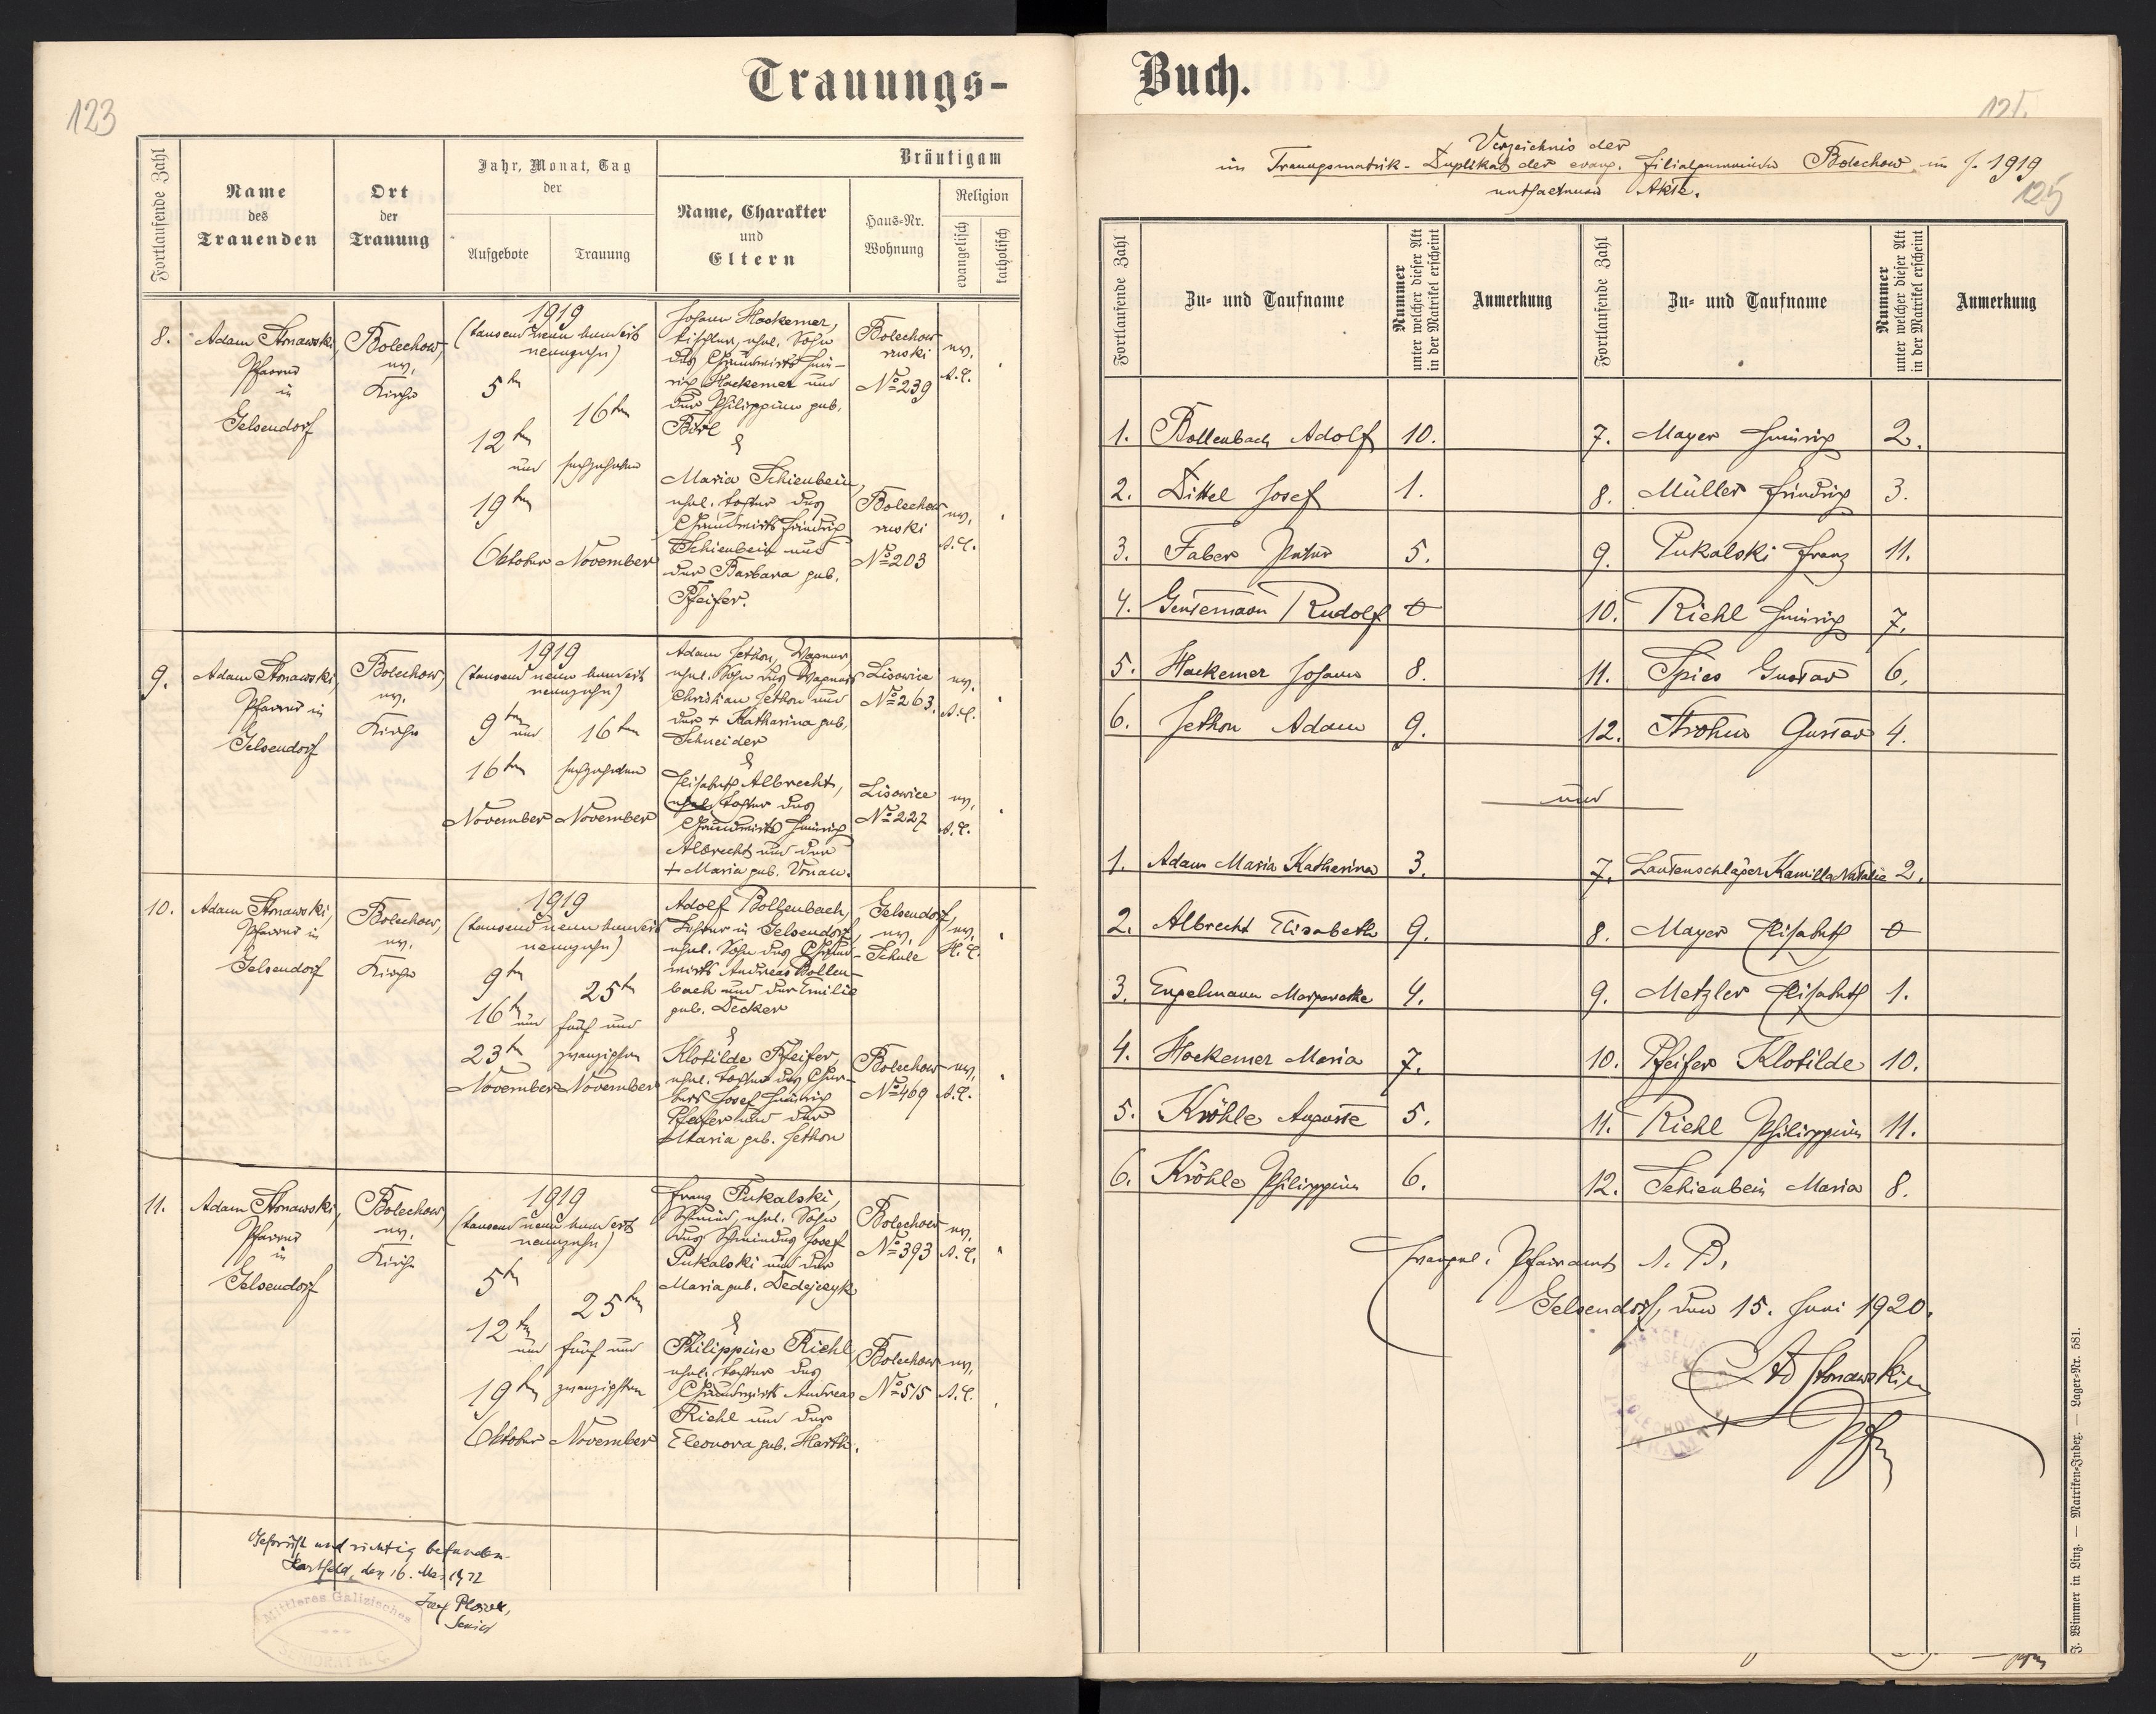 Trauungs-
123
Fortlaufende Zahl
Name
des
Trauenden
Ort
der
Trauung
Jahr, Monat, Tag
der
Aufgebote
Trauung
Bräutigam
Name, Charakter
und
Eltern
Haus-Nr.
Wohnung
Religion
evangelisch
katholisch
8.
Adam Stonawski,
Pfarrer
in
Gelsendorf
Bolechow,
ev.
Kirche
1919
(tausend neun hundert
neunzehn)
5ten
12ten
und
19ten
Oktober
16ten
sechzehnten
November
Johann Hackemer,
Tischler, ehel. Sohn
des Grundwirts Hein-
rich Hackemer und
der Philippine geb.
&
Maria Schienbein,
ehel. Tochter des
Grundwirts Friedrich
Schienbein und
der Barbara geb.
Pfeifer.
Bolechow
ruski
№ 239
ev.
A.C.
Bolechow
ruski
№ 203
ev.
A.C.
9.
Adam Stonawski,
Pfarrer in
Gelsendorf
Bolechow,
ev.
Kirche
1919
(tausend neun hundert
neunzehn)
9ten
und
16ten
November
16ten
sechzehnten
November
Adam Jethon, Wagner,
ehel. Sohn des Wagners
Christian Jethon und
der + Katharina geb.
Schneider
&
Elisabeth Albrecht,
ehel. Tochter des
Grundwirts Heinrich
Albrecht und der
+ Maria geb. Vonau.
Lisowice
№ 263.
ev.
A.C.
Lisowice
№ 227
ev.
A.C.
10.
Adam Stonawski,
Pfarrer in
Gelsendorf
Bolechow,
ev.
Kirche
1919
(tausend neun hundert
neunzehn)
9ten
16ten und
23ten
November
25ten
fünf und
zwanzigsten
November
Adolf Bollenbach,
Lehrer in Gelsendorf,
ehel. Sohn des Grund-
wirts Andreas Bollen-
bach und der Emilie
geb. Decker
&
Klotilde Pfeifer,
ehel. Tochter des Ger-
bers Josef Heinrich
Pfeifer und der
Maria geb. Jethon
Gelsendorf,
ev.
Schule
ev.
H.C.
Bolechow
№ 469
ev.
A.C.
11.
Adam Stonawski,
Pfarrer
in
Gelsendorf
Bolechow,
ev.
Kirche
1919
(tausend neun hundert
neunzehn)
5ten
12ten
und
19ten
Oktober
25ten
fünf und
zwanzigsten
November
Franz Pukalski,
Schmied, ehel. Sohn
des Schmiedes Josef
Pukalski und der
Maria geb. Dedejczyk
&
Philippine Riehl,
ehel. Tochter des
Grundwirts Andreas
Riehl und der
Eleonora geb. Harth.
Bolechow
№ 393
ev.
A.C.
Bolechow
№ 515
ev.
A.C.
Geprüft und richtig befunden.
Hartfeld, den 16. Mai 1922
Senior
Mittleres Galizisches
SENIORAT A. C.
Buch.
125
Verzeichnis der
im Trauungsmatrik-Duplikat der evang. Filialgemeinde Bolechow im J. 1919
enthaltenen Akte.
Fortlaufende Zahl
Zu- und Taufname
Nummer
unter welcher dieser Akt
in der Matrikel erscheint
Anmerkung
Fortlaufende Zahl
Zu- und Taufname
Nummer
unter welcher dieser Akt
in der Matrikel erscheint
Anmerkung
1. Bollenbach Adolf 10.
2. Dittel Josef 1.
3. Faber Peter 5.
4. Gensemann Rudolf 0
5. Hackemer Johann 8.
6. Jethon Adam 9.
7. Mayer Heinrich 2.
8. Müller Friedrich 3.
9. Pukalski Franz 11.
10. Riehl Heinrich 7.
11. Spies Gustav 6.
12. Strohm Gustav 4.
und
1. Adam Maria Katharina 3.
2. Albrecht Elisabeth 9.
3. Engelmann Margarethe 4.
4. Hackemer Maria 7.
5. Kröhle Auguste 5.
6. Kröhle Philippine 6.
7. Lautenschläger Kamilla Natalie 2.
8. Mayer Elisabeth 0
9. Metzler Elisabeth 1.
10. Pfeifer Klotilde 10.
11. Riehl Philippine 11.
12. Schienbein Maria 8.
Evangel. Pfarramt A. B.
Gelsendorf, den 15. Juni 1920.
Ad Stonawski
Pfr
J. Wimmer in Linz. — Matriken-Index. — Lager-Nr. 581.